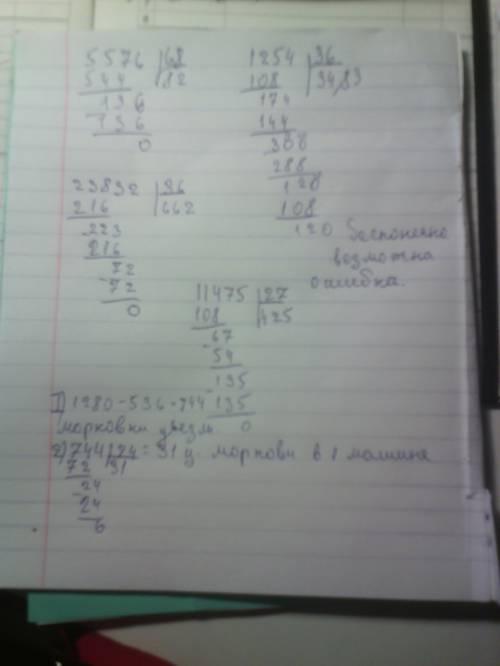 5576 | 68
544 | 82
136
136
0
1254 | 36
108 | 34,83
174
144
300
288
120
108
120 бесконечно
возможна
ошибка.
23832 | 36
216 | 662
223
216
72
72
0
11475 | 27
108 | 425
67
54
135
135
0
1) 1280-536-744
морковки увезли
2) 744 | 24 = 31 ц. моркови в 1 машине
72 | 31
24
24
0